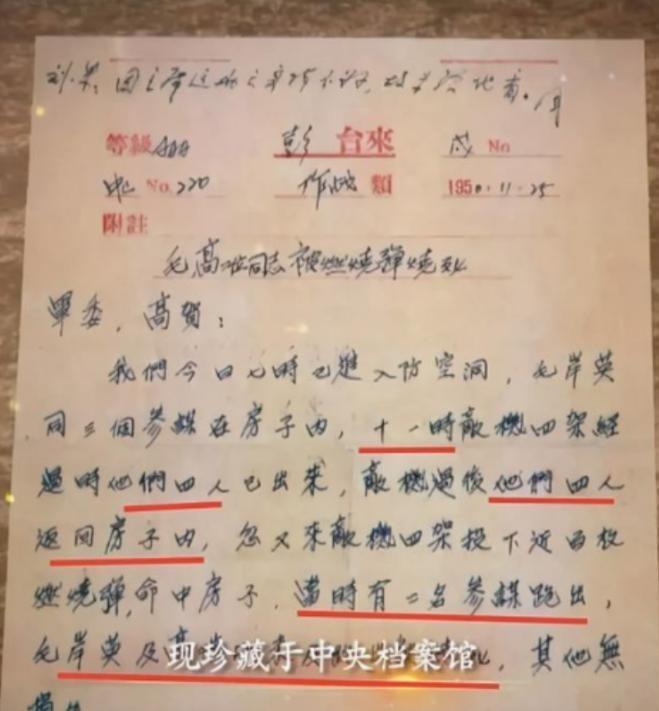 等級AAA 彭 台來 成 No
No.220 作战 類 1950.11.25
附註
毛高二位同志被燃燒彈燒死
軍委，高賀：
我們今日七時已進入防空洞，毛岸英
同三個參謀在房子內，十一時敵機四架經
過時他們四人已出來，敵機過後他們四人
返回房子內，忽又來敵機四架投下近百枚
燃燒彈，命中房子，當時有二名參謀跑出，
毛岸英及高 ，其他無
现珍藏于中央档案馆
損失